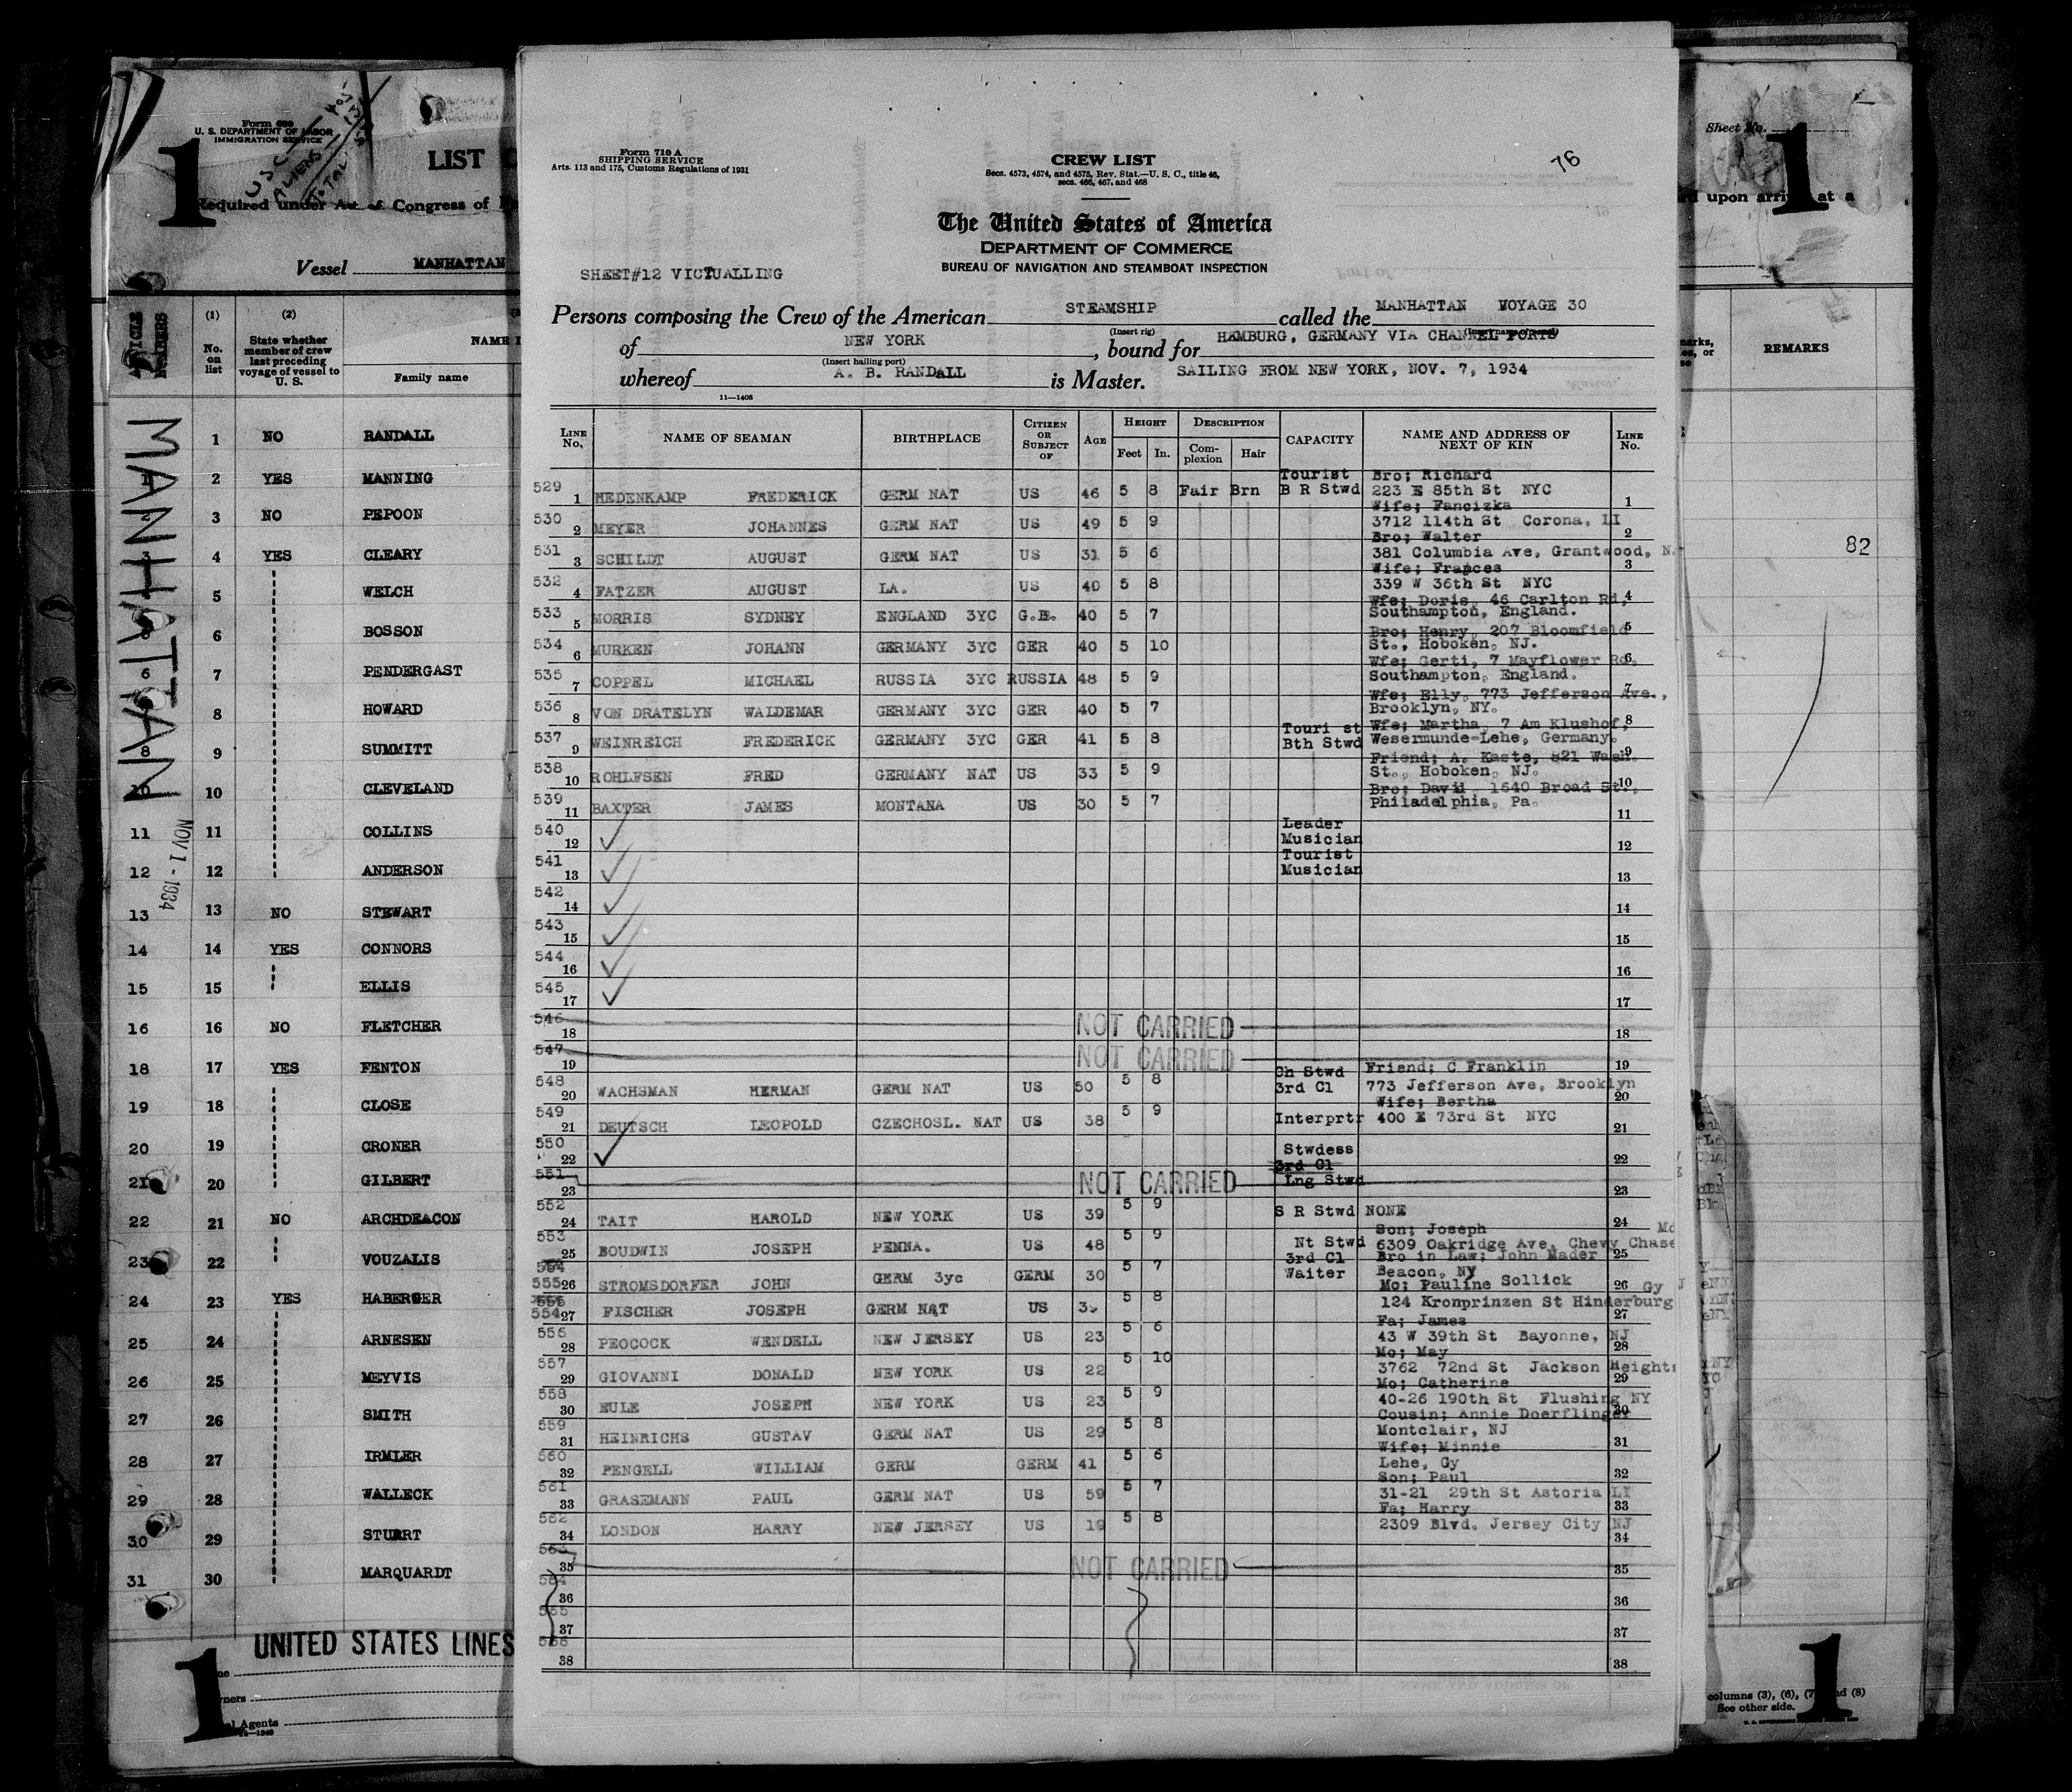 Form 680
U. S. DEPARTMENT OF LABOR
IMMIGRATION SERVICE
1
USC
ALIENS
TOTAL
LIST
Required under Act of Congress of
Vessel MANHATTAN
ARTICLE NUMBERS
(1) No. on list
(2) State whether member of crew last preceding voyage of vessel to U. S.
NAME
Family name
MANHATTAN
NOV 1 - 1934
1 NO RANDALL
1 2 YES MANNING
2 3 NO PEPOON
3 4 YES CLEARY
5 WELCH
6 BOSSON
6 7 PENDERGAST
8 HOWARD
8 9 SUMMITT
10 10 CLEVELAND
11 11 COLLINS
12 12 ANDERSON
13 13 NO STEWART
14 14 YES CONNORS
15 15 ELLIS
16 16 NO FLETCHER
18 17 YES FENTON
19 18 CLOSE
20 19 CRONER
21 20 GILBERT
22 21 NO ARCHDEACON
23 22 VOUZALIS
24 23 YES HABERGER
25 24 ARNESEN
26 25 MEYVIS
27 26 SMITH
28 27 IRMLER
29 28 WALLECK
30 29 STUART
31 30 MARQUARDT
UNITED STATES LINES
1
Agents
Form 710 A
SHIPPING SERVICE
Arts. 113 and 175, Customs Regulations of 1931
CREW LIST
Secs. 4573, 4574, and 4575, Rev. Stat.—U. S. C., title 46,
secs. 466, 467, and 468
76
The United States of America
DEPARTMENT OF COMMERCE
BUREAU OF NAVIGATION AND STEAMBOAT INSPECTION
SHEET#12 VICTUALLING
Persons composing the Crew of the American STEAMSHIP called the MANHATTAN VOYAGE 30
(Insert rig) (Insert name of vessel)
of NEW YORK, bound for HAMBURG, GERMANY VIA CHANNEL PORTS
(Insert hailing port)
whereof A. B. RANDALL is Master. SAILING FROM NEW YORK, NOV. 7, 1934
11—1408
LINE No. NAME OF SEAMAN BIRTHPLACE CITIZEN OR SUBJECT OF AGE HEIGHT Feet In. DESCRIPTION Complexion Hair CAPACITY NAME AND ADDRESS OF NEXT OF KIN LINE No.
Tourist Bro; Richard
529 1 HEDENKAMP FREDERICK GERM NAT US 46 5 8 Fair Brn B R Stwd 223 E 85th St NYC 1
Wife; Fancizka
530 2 MEYER JOHANNES GERM NAT US 49 5 9 3712 114th St Corona, LI 2
Bro; Walter
531 3 SCHILDT AUGUST GERM NAT US 31 5 6 381 Columbia Ave, Grantwood, N. 3
Wife; Frances
532 4 FATZER AUGUST LA. US 40 5 8 339 W 36th St NYC 4
Wfe; Doris, 46 Carlton Rd,
533 5 MORRIS SYDNEY ENGLAND 3YC G.B. 40 5 7 Southampton, England. 5
Bro; Henry, 207 Bloomfield
534 6 MURKEN JOHANN GERMANY 3YC GER 40 5 10 St., Hoboken, NJ. 6
Wfe; Gerti, 7 Mayflower Rd,
535 7 COPPEL MICHAEL RUSSIA 3YC RUSSIA 48 5 9 Southampton, England. 7
Wfe; Elly, 773 Jefferson Ave.,
536 8 VON DRATELYN WALDEMAR GERMANY 3YC GER 40 5 7 Brooklyn, NY. 8
Tourist Wfe; Martha, 7 Am Klushof,
537 9 WEINREICH FREDERICK GERMANY 3YC GER 41 5 8 Bth Stwd Wesermunde-Lehe, Germany. 9
Friend; A. Kaste, 821 Wash.
538 10 ROHLFSEN FRED GERMANY NAT US 33 5 9 St., Hoboken, NJ. 10
Bro; David 1640 Broad St.,
539 11 BAXTER JAMES MONTANA US 30 5 7 Philadelphia, Pa. 11
Leader
540 12 Musician 12
Tourist
541 13 Musician 13
542 14 14
543 15 15
544 16 16
545 17 17
546 18 NOT CARRIED 18
547 19 NOT CARRIED 19
Ch Stwd Friend; C Franklin
548 20 WACHSMAN HERMAN GERM NAT US 50 5 8 3rd Cl 773 Jefferson Ave, Brooklyn 20
Wife; Bertha
549 21 DEUTSCH LEOPOLD CZECHOSL. NAT US 38 5 9 Interprtr 400 E 73rd St NYC 21
550 22 Stwdess 22
3rd Cl
551 23 NOT CARRIED Lng Stwd 23
552 24 TAIT HAROLD NEW YORK US 39 5 9 S R Stwd NONE 24
Son; Joseph Md
553 25 BOUDWIN JOSEPH PENNA. US 48 5 9 Nt Stwd 6309 Oakridge Ave, Chevy Chase 25
3rd Cl Bro in Law; John Mader
554 555 26 STROMSDORFER JOHN GERM 3yc GERM 30 5 7 Waiter Beacon, NY 26
Mo; Pauline Sollick Gy
555 554 27 FISCHER JOSEPH GERM NAT US 5 8 124 Kronprinzen St Hinderburg 27
Fa; James
556 28 PEOCOCK WENDELL NEW JERSEY US 23 5 6 43 W 39th St Bayonne, NJ 28
Mo; May
557 29 GIOVANNI DONALD NEW YORK US 22 5 10 3762 72nd St Jackson Heights 29
Mo; Catherine
558 30 EULE JOSEPH NEW YORK US 23 5 9 40-26 190th St Flushing NY 30
Cousin; Annie Doerflinger
559 31 HEINRICHS GUSTAV GERM NAT US 29 5 8 Montclair, NJ 31
Wife; Minnie
560 32 PENGELL WILLIAM GERM GERM 41 5 6 Lehe, Gy 32
Son; Paul
561 33 GRASEMANN PAUL GERM NAT US 59 5 7 31-21 29th St Astoria LI 33
Fa; Harry
562 34 LONDON HARRY NEW JERSEY US 19 5 8 2309 Blvd. Jersey City NJ 34
563 35 NOT CARRIED 35
564 36 36
565 37 37
566 38 38
Sheet No.
1
upon arrival at a
REMARKS
82
columns (3), (6), (7) and (8)
See other side.
1